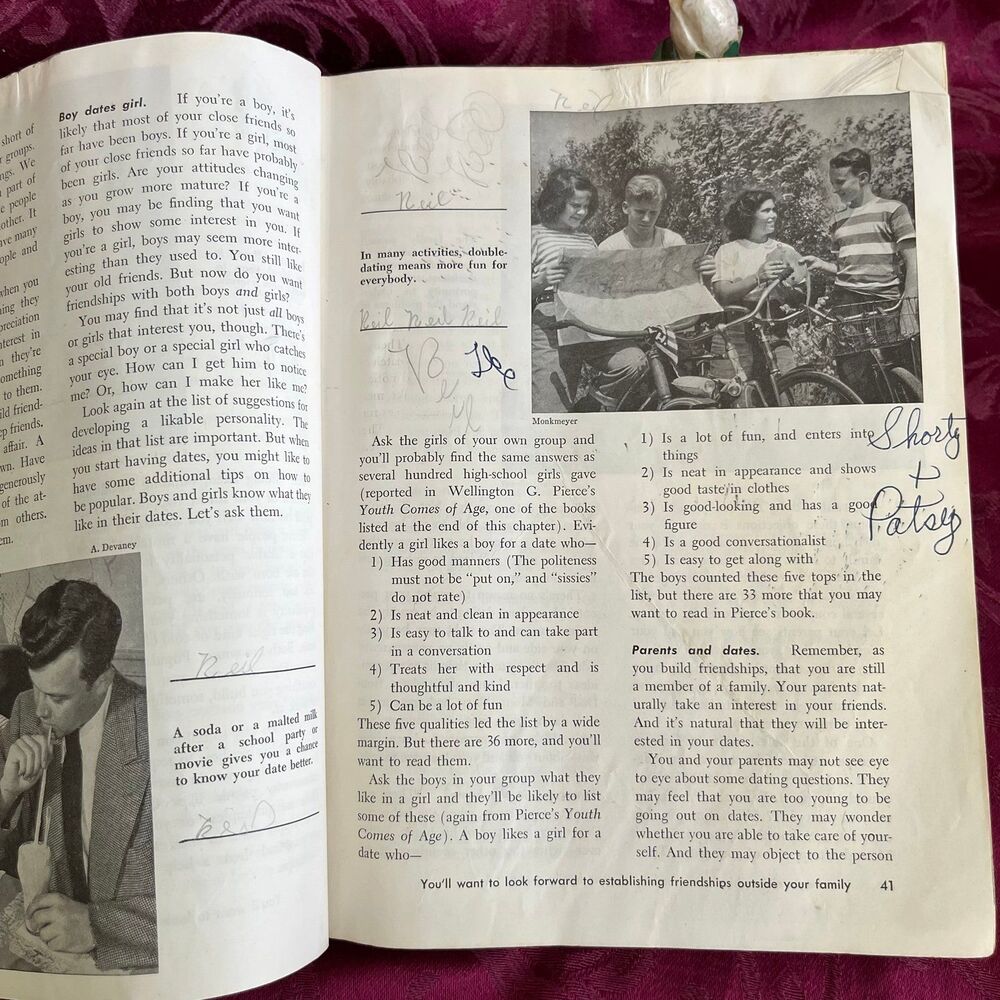 short of
groups.
ngs. We
part of
people
other. It
ve many
ople and
when you
ing they
preciation
terest in
n they're
omething
to them.
ild friend-
ep friends.
affair. A
wn. Have
generously
of the at-
m others.
em.
Boy dates girl. If you're a boy, it's
likely that most of your close friends so
far have been boys. If you're a girl, most
of your close friends so far have probably
been girls. Are your attitudes changing
as you grow more mature? If you're a
boy, you may be finding that you want
girls to show some interest in you. If
you're a girl, boys may seem more inter-
esting than they used to. You still like
your old friends. But now do you want
friendships with both boys and girls?
You may find that it's not just all boys
or girls that interest you, though. There's
a special boy or a special girl who catches
your eye. How can I get him to notice
me? Or, how can I make her like me?
Look again at the list of suggestions for
developing a likable personality. The
ideas in that list are important. But when
you start having dates, you might like to
have some additional tips on how to
be popular. Boys and girls know what they
like in their dates. Let's ask them.
A. Devaney
Neil
A soda or a malted milk
after a school party or
movie gives you a chance
to know your date better.
Neil
Neil
Neil
In many activities, double-
dating means more fun for
everybody.
Neil Neil Neil
Monkmeyer
Ask the girls of your own group and
you'll probably find the same answers as
several hundred high-school girls gave
(reported in Wellington G. Pierce's
Youth Comes of Age, one of the books
listed at the end of this chapter). Evi-
dently a girl likes a boy for a date who—
1) Has good manners (The politeness
must not be "put on," and "sissies"
do not rate)
2) Is neat and clean in appearance
3) Is easy to talk to and can take part
in a conversation
4) Treats her with respect and is
thoughtful and kind
5) Can be a lot of fun
These five qualities led the list by a wide
margin. But there are 36 more, and you'll
want to read them.
Ask the boys in your group what they
like in a girl and they'll be likely to list
some of these (again from Pierce's Youth
Comes of Age). A boy likes a girl for a
date who—
1) Is a lot of fun, and enters into
things
2) Is neat in appearance and shows
good taste in clothes
3) Is good-looking and has a good
figure
4) Is a good conversationalist
5) Is easy to get along with
The boys counted these five tops in the
list, but there are 33 more that you may
want to read in Pierce's book.
Shorty
+
Patsy
Parents and dates. Remember, as
you build friendships, that you are still
a member of a family. Your parents nat-
urally take an interest in your friends.
And it's natural that they will be inter-
ested in your dates.
You and your parents may not see eye
to eye about some dating questions. They
may feel that you are too young to be
going out on dates. They may wonder
whether you are able to take care of your-
self. And they may object to the person
You'll want to look forward to establishing friendships outside your family 41